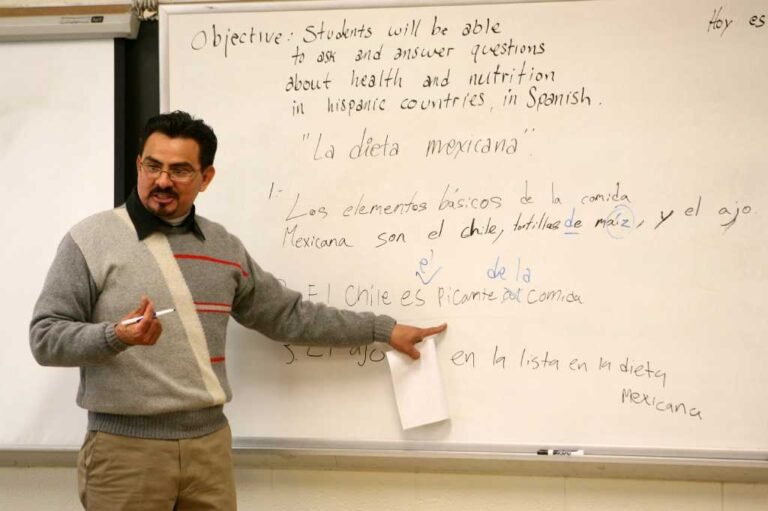 Objective: Students will be able
Hoy es
to ask and answer questions
about health and nutrition
in hispanic countries, in Spanish.
"La dieta mexicana".
1.- Los elementos básicos de la comida
Mexicana son el chile, tortillas de maíz, y el ajo.
de la
El Chile es picante comida
3. El ajo en la lista en la dieta
Mexicana